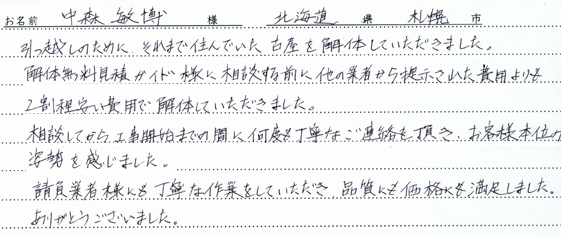 お名前 中森 敏博 様 北海道 県 札幌 市
引っ越しのために、それまで住んでいた古屋を解体していただきました。
解体無料見積ガイド様に相談する前に他の業者から提示された費用よりも
2割程安い費用で解体していただきました。
相談してから工事開始までの間に何度も丁寧なご連絡を頂き、お客様本位の
姿勢を感じました。
請負業者様にも丁寧な作業をしていただき、品質にも価格にも満足しました。
ありがとうございました。